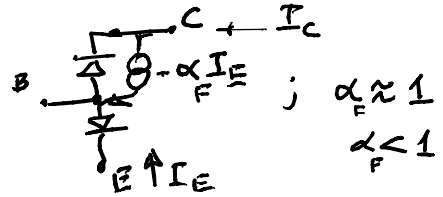 C I_C
B α_F I_E ; α_F ≈ 1
α_F < 1
E ↑ I_E